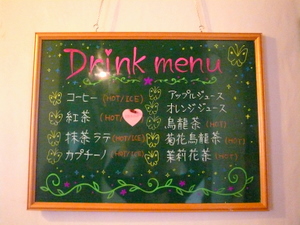 Drink menu
コーヒー (HOT/ICE)
紅茶 (HOT/
抹茶ラテ (HOT/ICE)
カプチーノ (HOT/ICE)
アップルジュース
オレンジジュース
烏龍茶 (HOT)
菊花烏龍茶 (HOT)
茉莉花茶 (HOT)